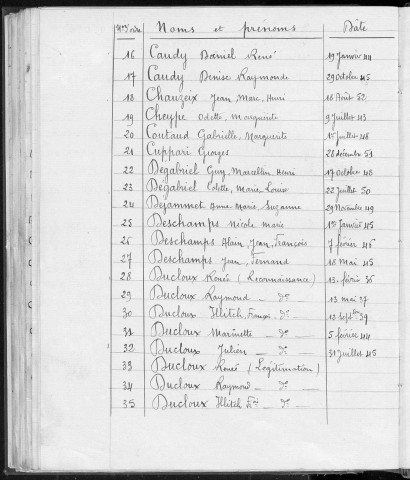 Nos d'ordre Noms et prénoms Dâte
16 Caudy Daniel René 19 Janvier 44
17 Caudy Denise Raymonde 29 Octobre 45
18 Chauzeix Jean, Marc, Henri 16 Août 52
19 Cheype Odette, Marguerite 9 Juillet 43
20 Coutaud Gabrielle, Marguerite 1er Juillet 48
21 Cuppari Georges 28 décembre 51
22 Dégabriel Guy, Marcellin, Henri 17 Octobre 48
23 Dégabriel Odette, Marie, Louise 22 Juillet 50
24 Dejammet Anne-Marie, Suzanne 29 Novembre 49
25 Deschamps Nicole Marie 1er Janvier 45
26 Deschamps Alain, Jean, François 7 février 46
27 Deschamps Jean, Fernand 18 Mai 45
28 Ducloux René (Reconnaissance) 13 févrie 36
29 Ducloux Raymond — do 13 mai 37
30 Ducloux Illitch, Franço. do 12 septbre 39
31 Ducloux Marinette — do 5 février 44
32 Ducloux Julien — do 31 Juillet 45
33 Ducloux René (Légitimation)
34 Ducloux Raymond — do
35 Ducloux Illitch — do